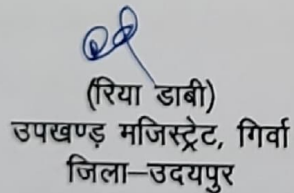 (रिया डाबी)
उपखण्ड़ मजिस्ट्रेट, गिर्वा
जिला–उदयपुर